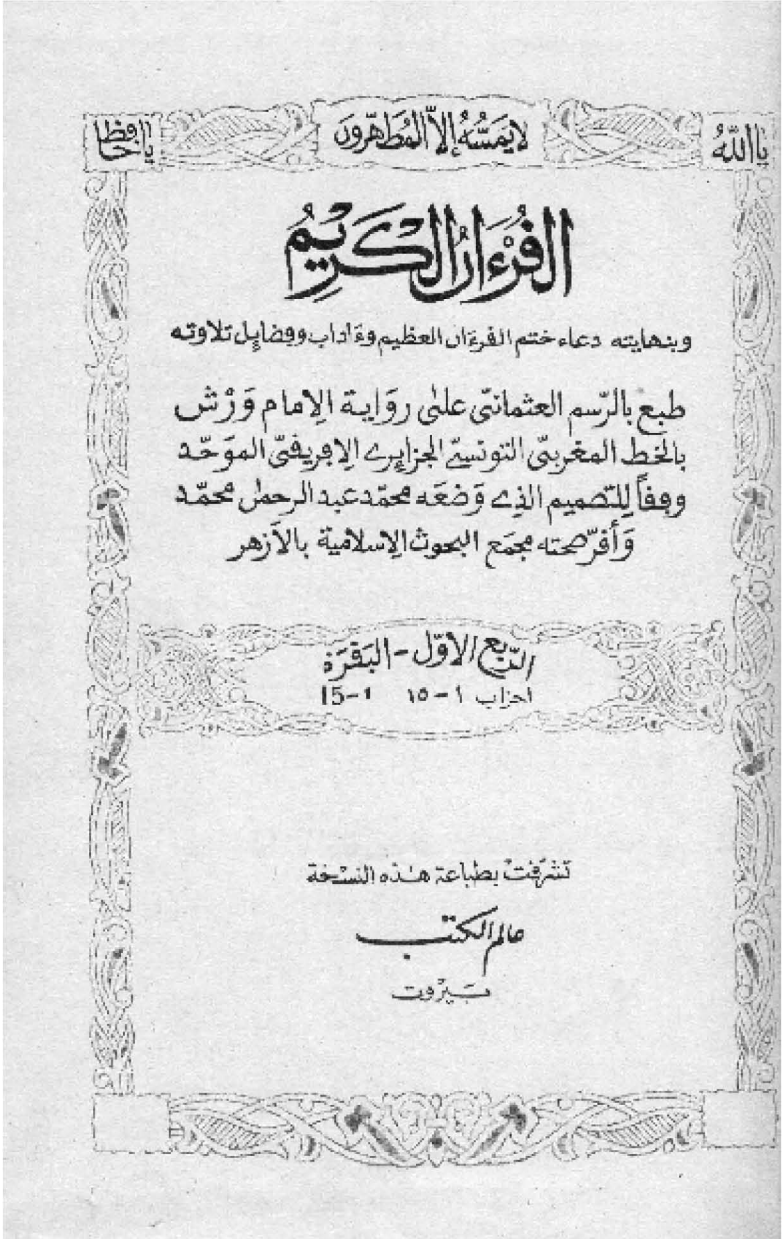 يا الله
لا يمسّه إلاّ المطهّرون
يا حافظ
القُرْءَانُ الكَرِيمُ
وبنهايته دعاء ختم القرءان العظيم وءاداب وفضايل تلاوته
طبع بالرّسم العثمانيّ على روَاية الإمام وَرْش
بالخط المغربيّ التونسيّ الجزايري الإفريقيّ الموَحّد
وفقاً للتصميم الذي وَضعَه محمّد عبد الرحمن محمّد
وَأقرّ صحته مجمَع البحوث الإسلامية بالأزهر
الرّبع الأوّل - البَقرَة
أحزاب ١ - ١٥ 1-15
تشرّفتْ بطباعة هـٰذه النسْخة
عالم الكتب
بَيْرُوت